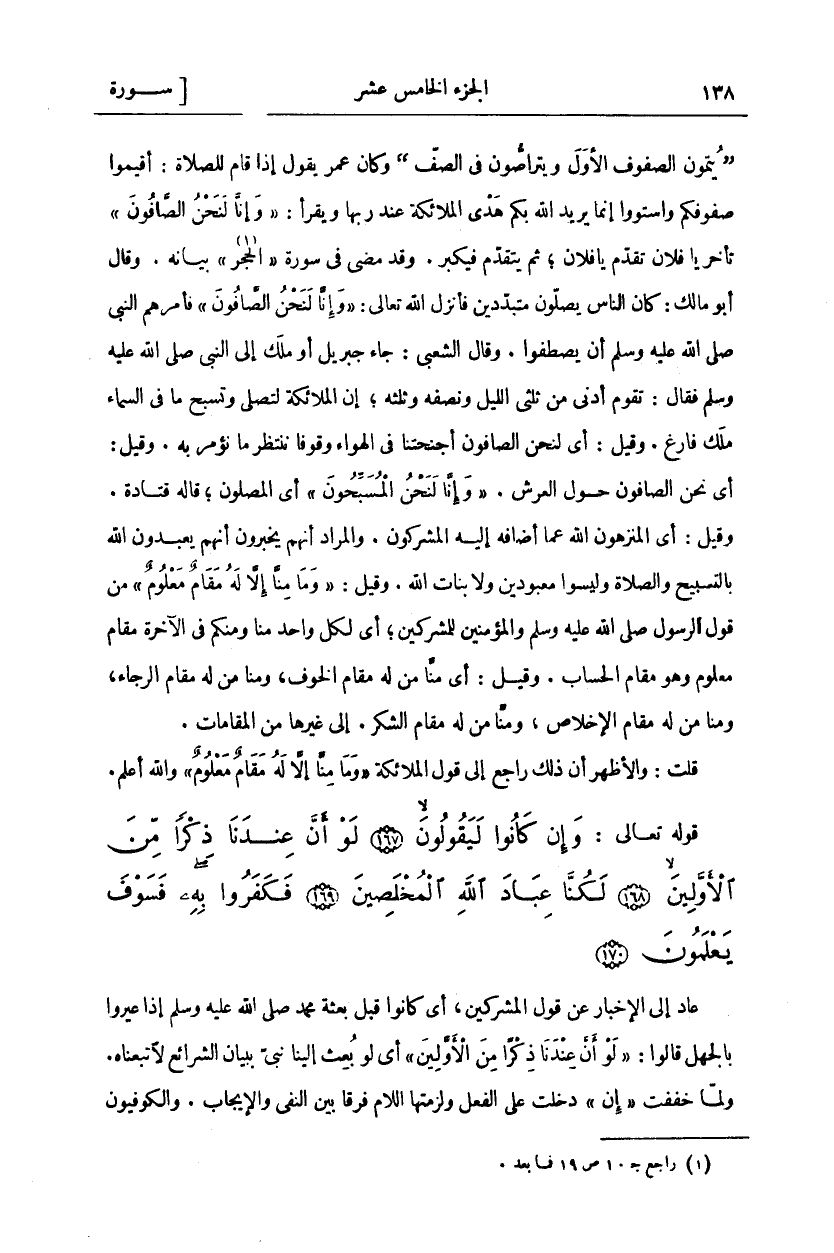 ١٣٨ الجزء الخامس عشر [ ســـورة
”يُتمون الصفوف الأوَلَ ويتراصُّون فى الصفّ“ وكان عمر يقول إذا قام للصلاة : أقيموا
صفوفكم واستووا إنما يريد الله بكم هَدْى الملائكة عند ربها ويقرأ : « وَإِنَّا لَنَحْنُ الصَّافُّونَ »
تأخر يا فلان تقدّم يافلان ؛ ثم يتقدّم فيكبر . وقد مضى فى سورة « الْحِجْر (١) » بيانه . وقال
أبو مالك : كان الناس يصلّون متبدّدين فأنزل الله تعالى : «وَإِنَّا لَنَحْنُ الصَّافُّونَ » فأمرهم النبي
صلى الله عليه وسلم أن يصطفوا . وقال الشعبى : جاء جبريل أو ملَك إلى النبي صلى الله عليه
وسلم فقال : تقوم أدنى من ثلثى الليل ونصفه وثلثه ؛ إن الملائكة لتصلى وتسبح ما فى السماء
ملَك فارغ . وقيل : أى لنحن الصافون أجنحتنا فى الهواء وقوفا ننتظر ما نؤمر به . وقيل :
أى نحن الصافون حــول العرش . « وَإِنَّا لَنَحْنُ الْمُسَبِّحُونَ » أى المصلون ؛ قاله قتــادة .
وقيل : أى المنزهون الله عما أضافه إليــه المشركون . والمراد أنهم يخبرون أنهم يعبــدون الله
بالتسبيح والصلاة وليسوا معبودين ولا بنات الله . وقيل : « وَمَا مِنَّا إِلَّا لَهُ مَقَامٌ مَعْلُومٌ » من
قول الرسول صلى الله عليه وسلم والمؤمنين للمشركين ؛ أى لــكل واحد منا ومنكم فى الآخرة مقام
معلوم وهو مقام الحساب . وقيــل : أى منَّا من له مقام الخوف، ومنا من له مقام الرجاء،
ومنا من له مقام الإخلاص ، ومنَّا من له مقام الشكر . إلى غيرها من المقامات .
قلت : والأظهر أن ذلك راجع إلى قول الملائكة «وَمَا مِنَّا إِلَّا لَهُ مَقَامٌ مَعْلُومٌ» والله أعلم.
قوله تعــالى : وَإِن كَانُوا لَيَقُولُونَ ۙ ١٦٧ لَوْ أَنَّ عِنــدَنَا ذِكْرًا مِّنَ
ٱلْأَوَّلِينَ ۙ ١٦٨ لَكُنَّا عِبَادَ ٱللَّهِ ٱلْمُخْلَصِينَ ١٦٩ فَكَفَرُوا بِهِۦ ۖ فَسَوْفَ
يَعْلَمُونَ ١٧٠
عاد إلى الإخبار عن قول المشركين، أى كانوا قبل بعثة محمد صلى الله عليه وسلم إذا عيروا
بالجهل قالوا : « لَوْ أَنَّ عِنْدَنَا ذِكْرًا مِنَ الْأَوَّلِينَ» أى لو بُعِث إلينا نبىّ ببيان الشرائع لأتبعناه.
ولمّــا خففت « إن » دخلت على الفعل ولزمتها اللام فرقا بين النفى والإيجاب . والكوفيون
(١) راجع جـ ١٠ ص ١٩ فــا بعد .